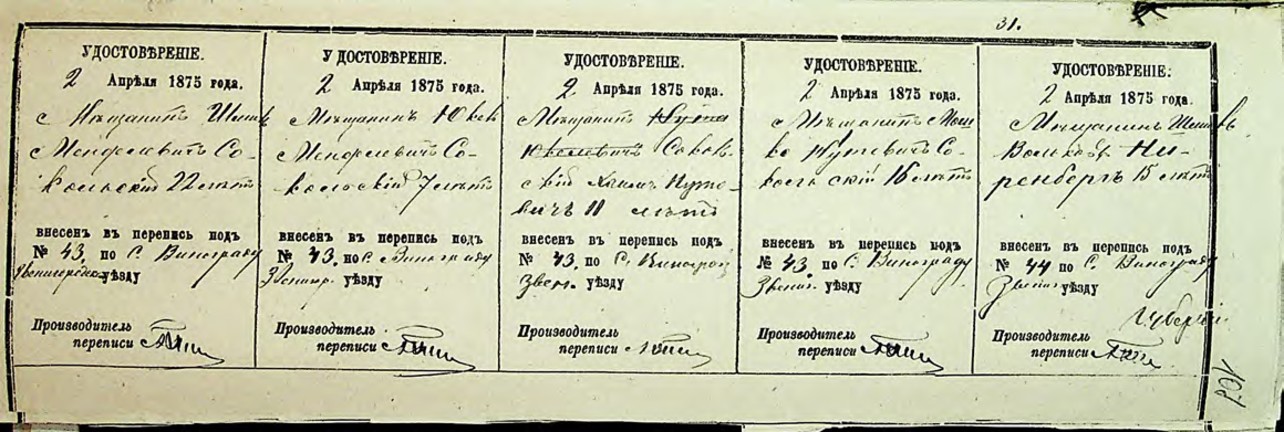 31.
УДОСТОВѢРЕНІЕ.
2 Апрѣля 1875 года.
Мѣщанинъ
Менделевичъ Со-
кольскій 22 лѣтъ
внесенъ въ перепись подъ
№ 43, по С. Винограду
Звенигородск. уѣзду
Производитель
переписи
УДОСТОВѢРЕНІЕ.
2 Апрѣля 1875 года.
Мѣщанинъ
Менделевичъ Со-
кольскій 7 лѣтъ
внесенъ въ перепись подъ
№ 43, по С. Винограду
Звенигор. уѣзду
Производитель
переписи
УДОСТОВѢРЕНІЕ.
2 Апрѣля 1875 года.
Мѣщанинъ Нута
Соколь-
скій Нуто-
вичъ 11 лѣтъ
внесенъ въ перепись подъ
№ 43, по С. Виноград
Звен. уѣзду
Производитель
переписи
УДОСТОВѢРЕНІЕ.
2 Апрѣля 1875 года.
Мѣщанинъ Мош
ко Нутевичъ Со-
кольскій 16 лѣтъ
внесенъ въ перепись подъ
№ 43 по С. Винограду
Звениг. уѣзду
Производитель
переписи
УДОСТОВѢРЕНІЕ.
2 Апрѣля 1875 года.
Мѣщанинъ
Ни-
ренбергъ 15 лѣтъ
внесенъ въ перепись подъ
№ 44 по С. Винограду
Звениг уѣзду
Производитель
переписи